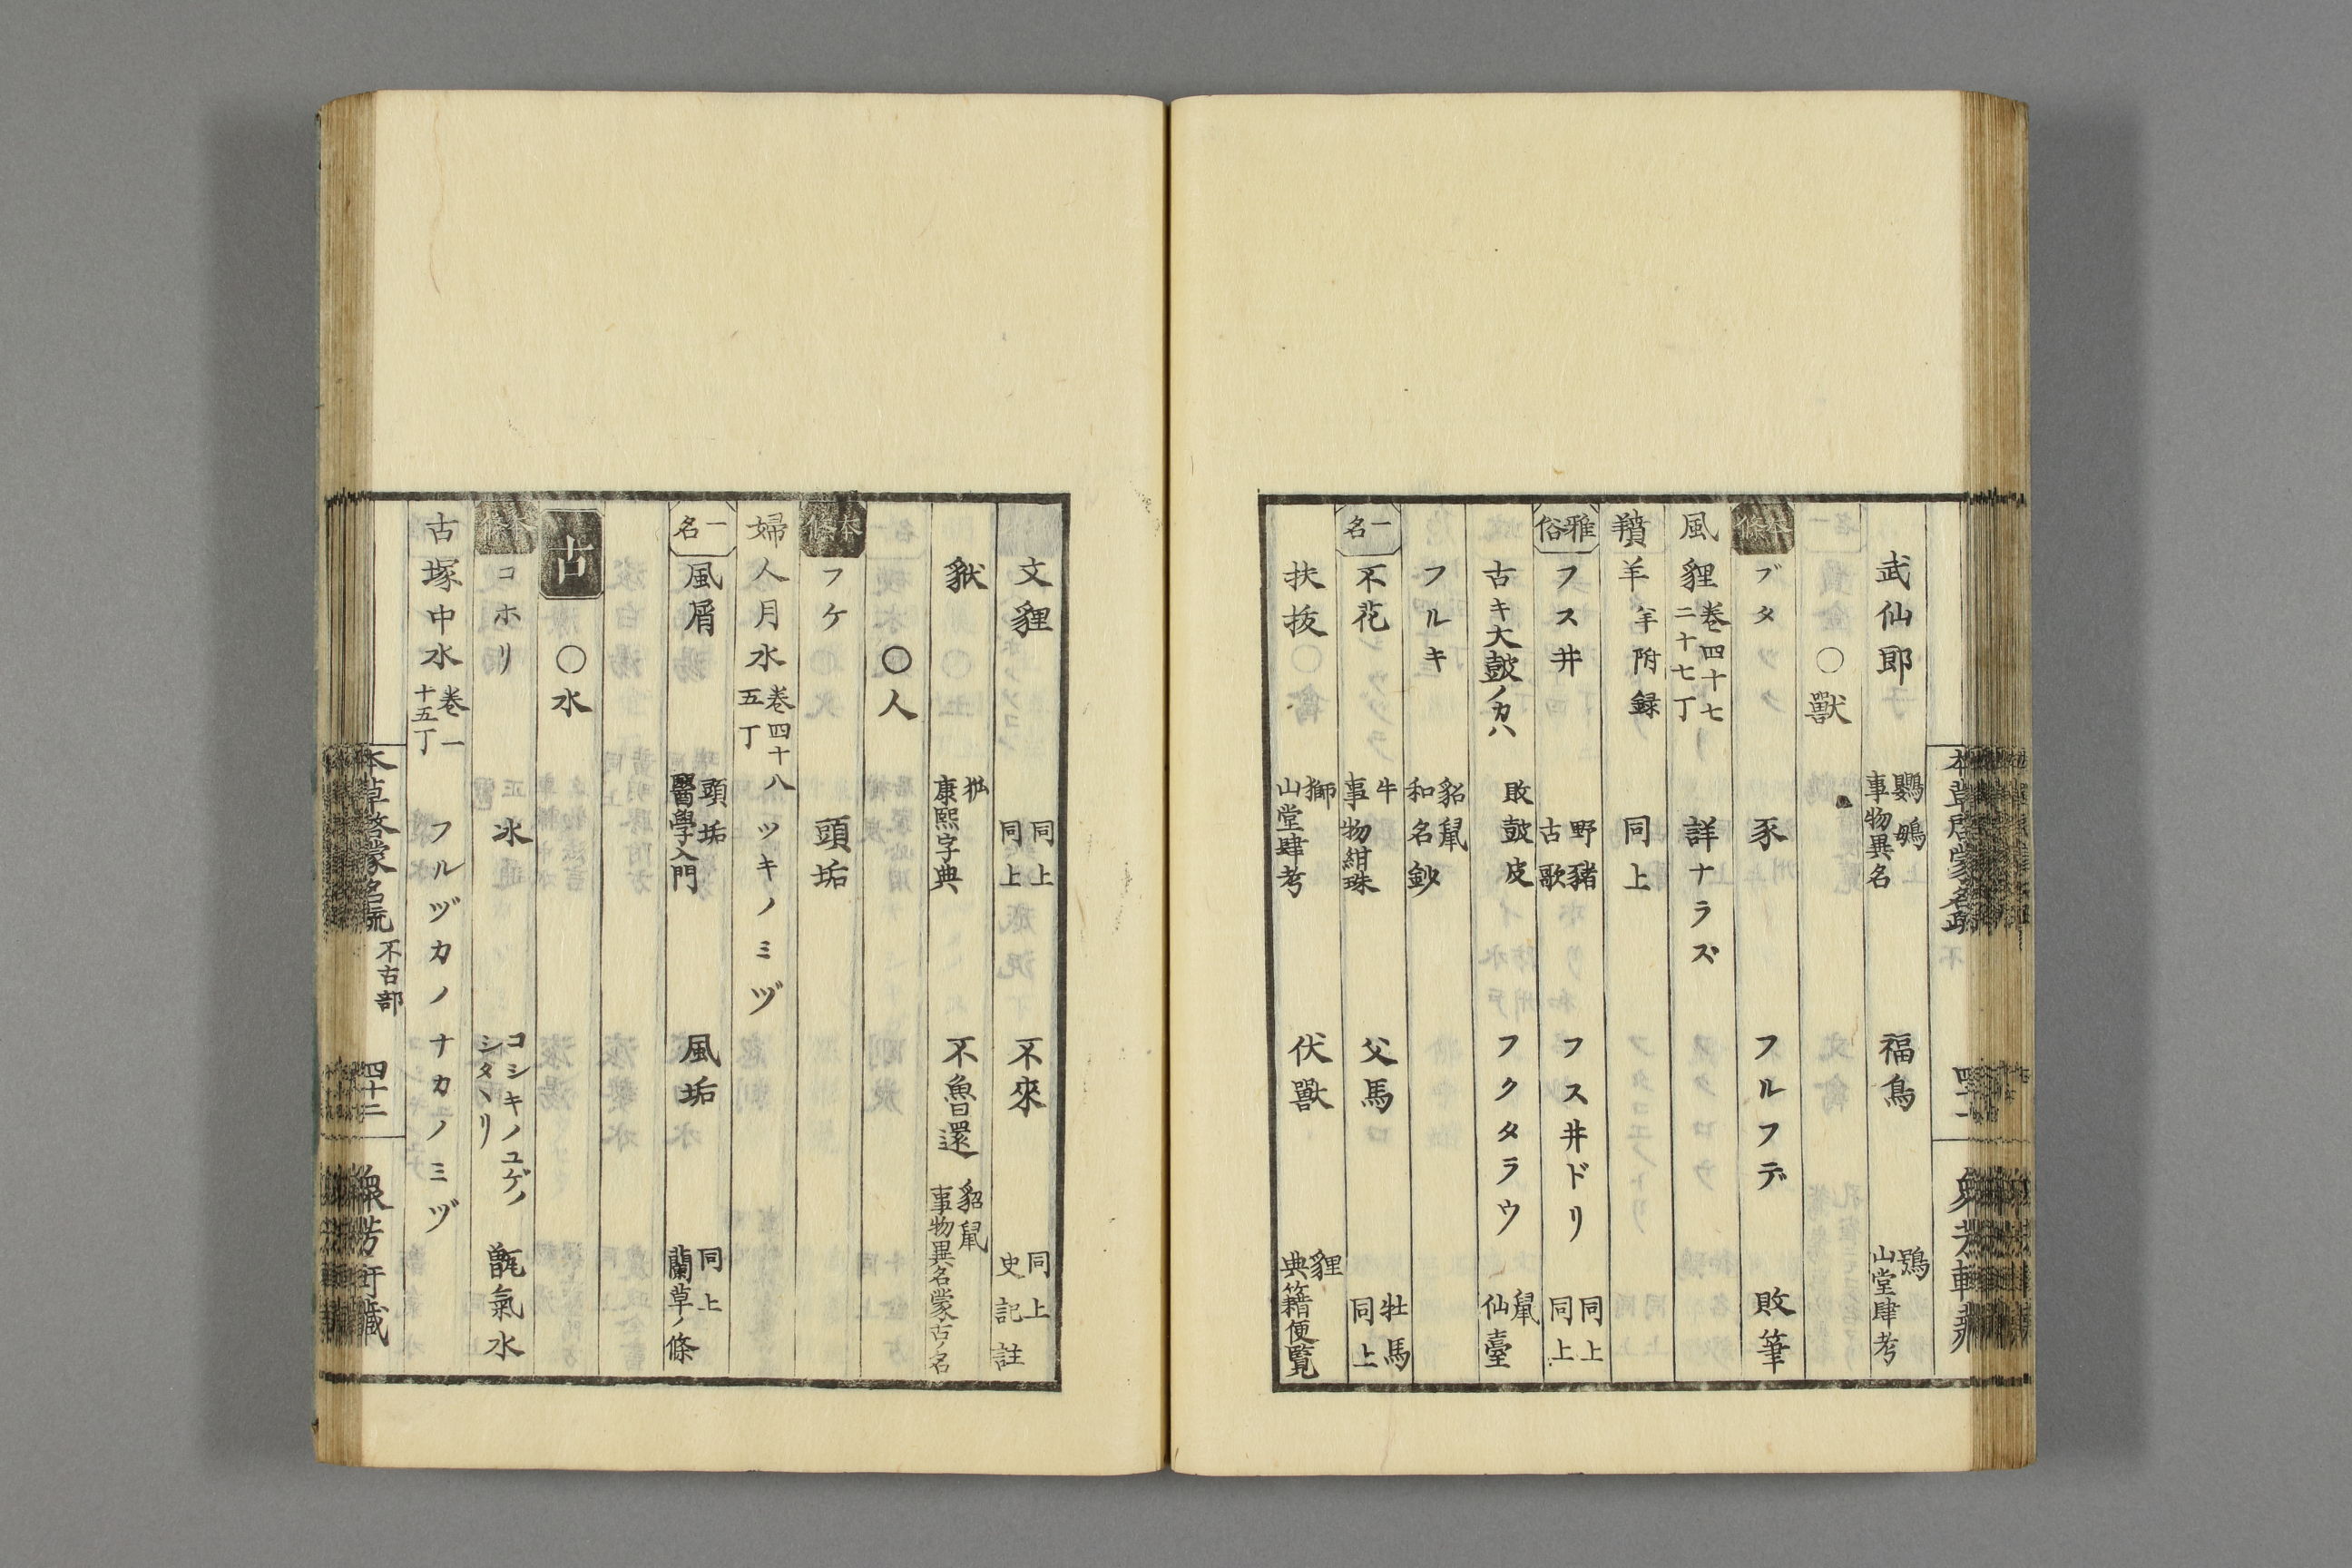 武仙郎 鸚鵡 事物異名 福鳥 鵶 山堂肆考
〇獸
本條 ブタ 豕 フルフデ 敗筆
風貍 卷四十七 二十七丁 詳ナラズ
羵羊 羊附録 同上
雅俗 フス井 野豬 古歌 フス井ドリ 同上 同上
古キ大鼓ノカハ 敗鼓皮 フクタラウ 鼠 仙臺
フルキ 貂鼠 和名鈔
一名 不花 牛 事物紺珠 父馬 牡馬 同上
扶拔 獅 山堂肆考 伏獸 貍 典籍便覽
文貍 同上 同上 不來 同上 史記註
猷 康熙字典 不魯還 貂鼠 事物異名蒙古ノ名
〇人
本條 フケ 頭垢
婦人月水 卷四十八 五丁 ツキノミヅ
一名 風屑 頭垢 醫學入門 風垢 同上 蘭草ノ條
古
〇水
本條 コホリ 冰 コシキノユゲノシタヽリ 甑氣水
古塚中水 卷一 十五丁 フルヅカノナカノミヅ
本草啓蒙名疏 不古部 四十二 衆芳軒藏